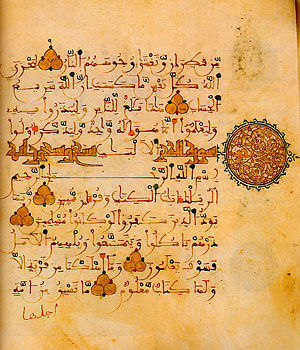 من قطران وتغشى وجوههم النار ليجزي
الله كل نفس ما كسبت إن الله سريع
الحساب هذا بلغ للناس ولينذروا به
وليعلموا أنما هو إله وحد وليذكر أولوا
الألباب
بسم الله الرحمن الرحيم
الر تلك ءايت الكتب وقرءان مبين ربما
يود الذين كفروا لو كانوا مسلمين
ذرهم يأكلوا ويتمتعوا ويلههم الأمل
فسوف يعلمون وما أهلكنا من قرية إلا
ولها كتاب معلوم ما تسبق من أمة
أجلها